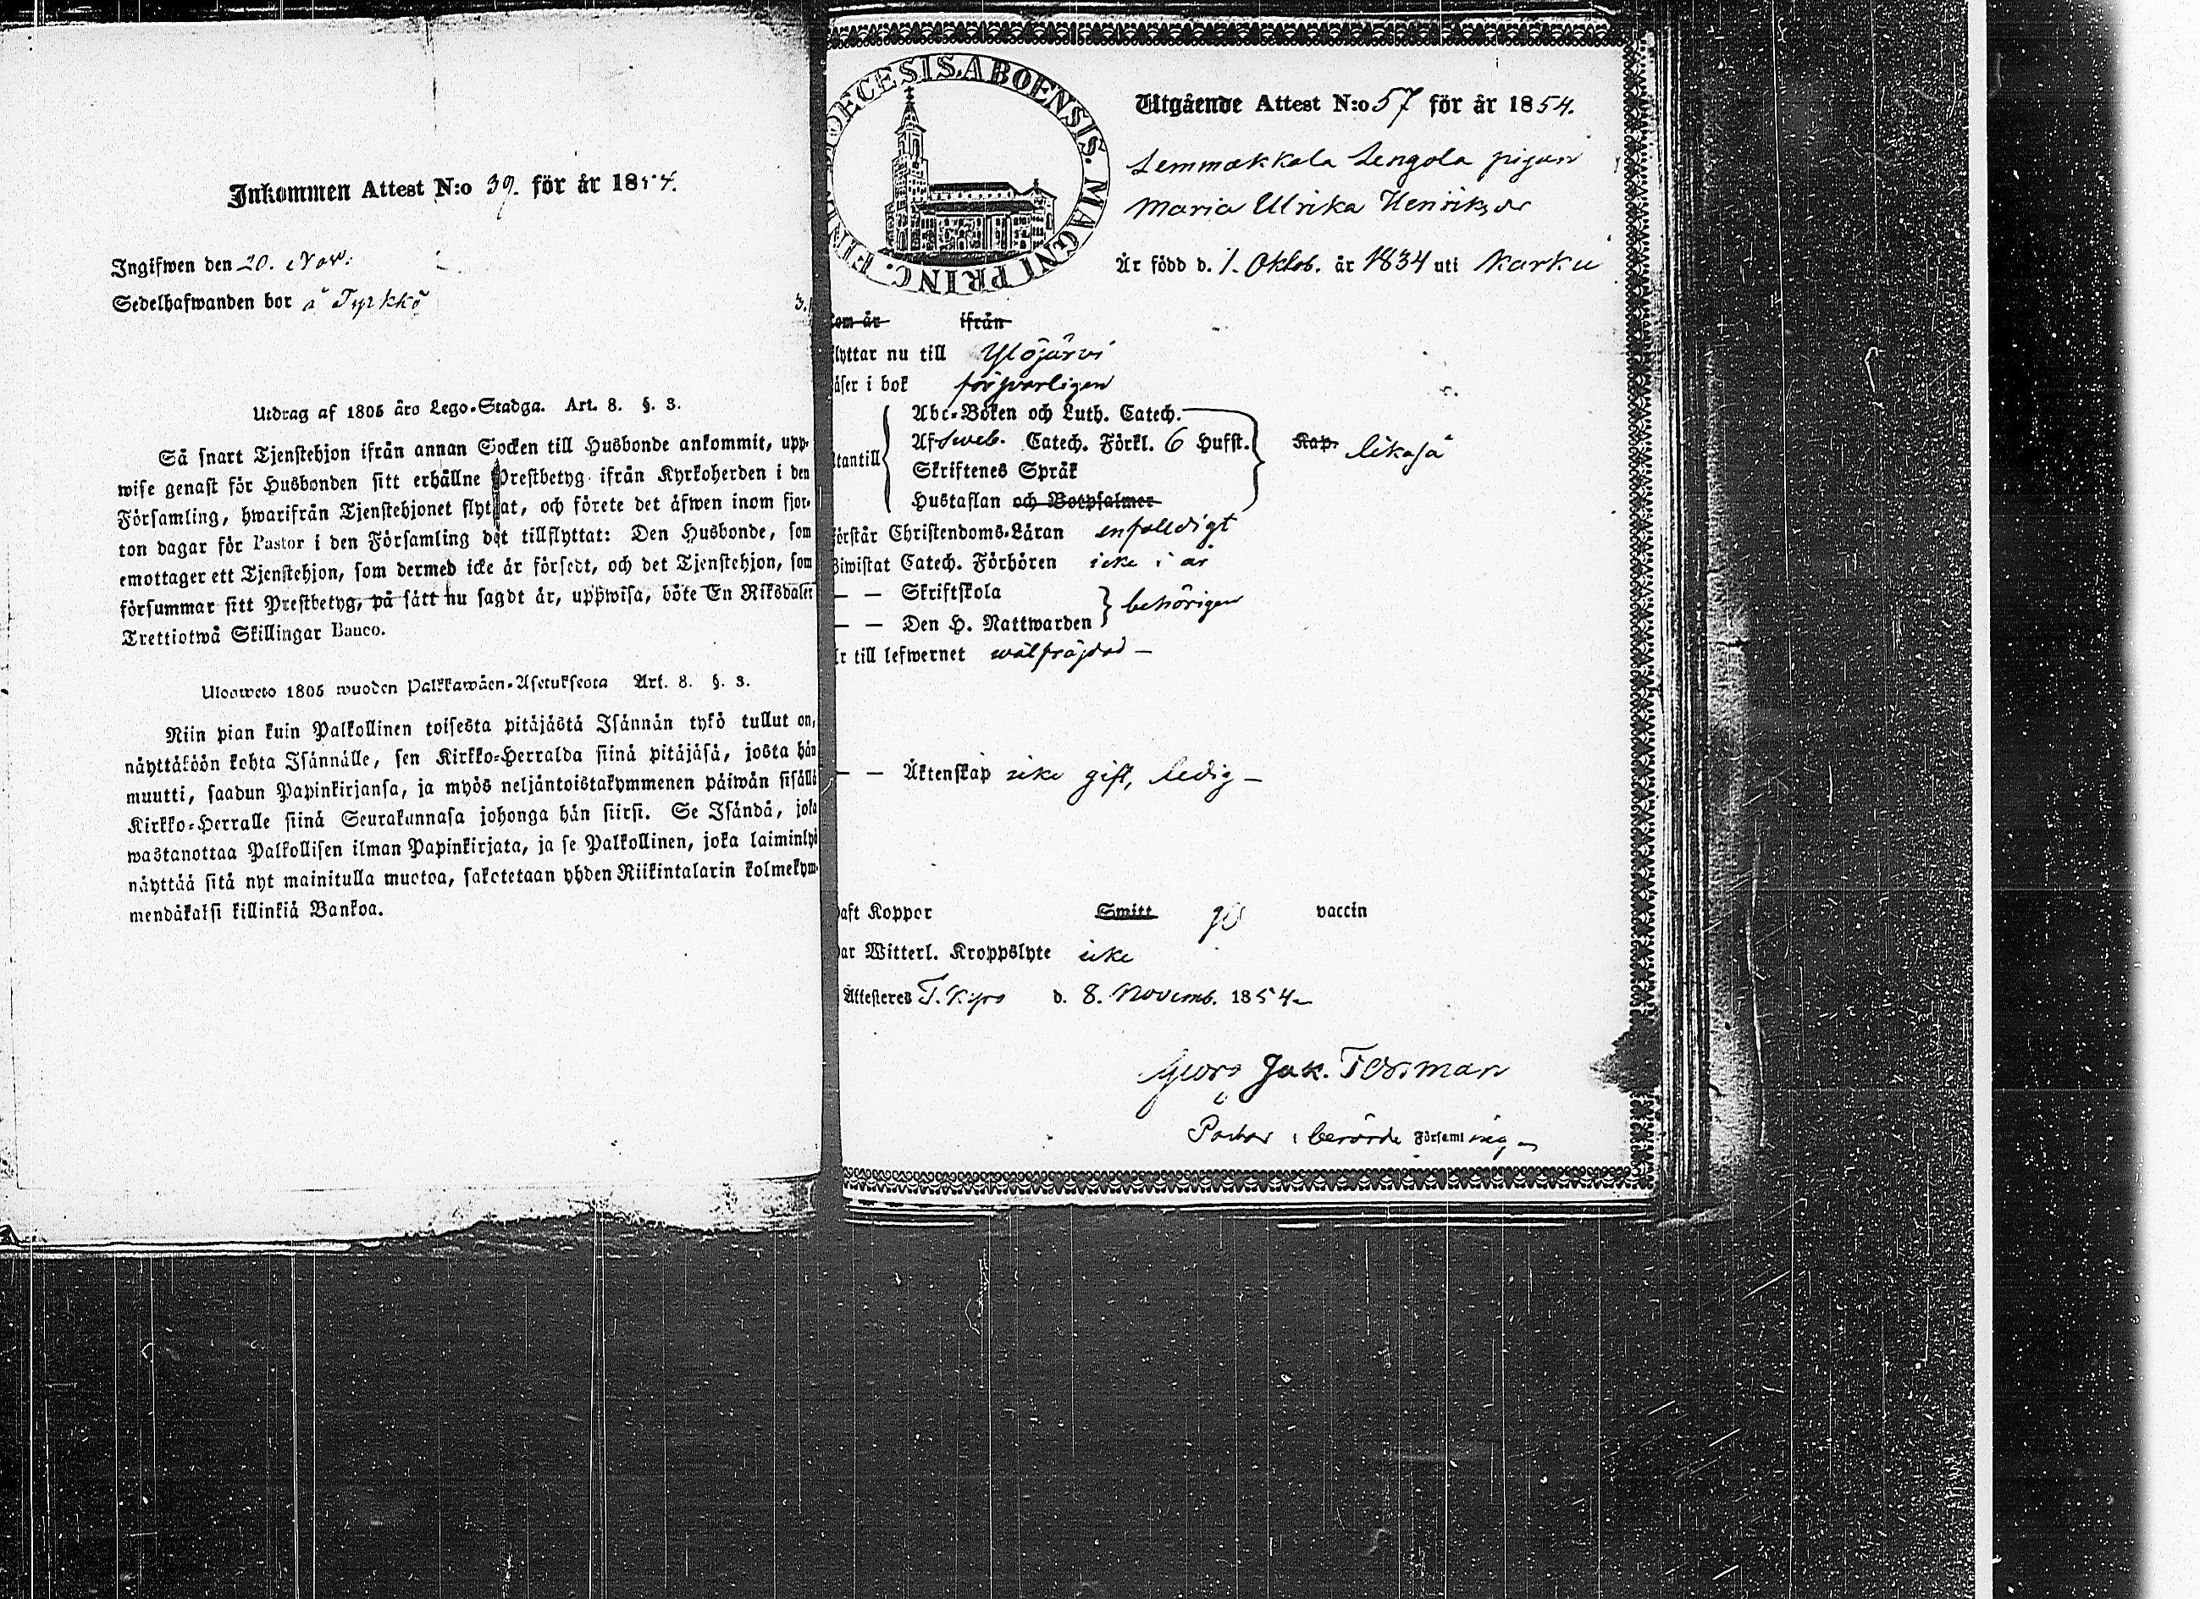 Inkommen Attest N:o 39. för år 1854.
Ingifwen den 20. Nov:
Sedelhafwanden bor å Tyrkkö
Utdrag af 1805 års Lego-Stadga. Art. 8. §. 3.
Så snart Tjenstehjon ifrån annan Socken till Husbonde ankommit, upp-
wise genast för Husbonden sitt erhållne Prestbetyg ifrån Kyrkoherden i den
Församling, hwarifrån Tjenstehjonet flyttat, och förete det äfwen inom fjor-
ton dagar för Pastor i den Församling det tillflyttat: Den Husbonde, som
emottager ett Tjenstehjon, som dermed icke är försedt, och det Tjenstehjon, som
försummar sitt Prestbetyg, på sätt nu sagdt är, uppwisa, böte En Riksdaler
Trettiotwå Skillingar Banco.
Ulosweto 1805 wuoden Palkkawäen-Asetuksesta Art. 8. §. 3.
Niin pian kuin Palkollinen toisesta pitäjästä Isännän tykö tullut on,
näyttäköön kohta Isännälle, sen Kirkko-Herralda siinä pitäjäsä, josta hän
muutti, saadun Papinkirjansa, ja myös neljäntoistakymmenen päiwän sisällä
Kirkko-Herralle siinä Seurakunnasa johonga hän siirsi. Se Isändä, joka
wastanottaa Palkollisen ilman Papinkirjata, ja se Palkollinen, joka laiminlyö
näyttää sitä nyt mainitulla muotoa, saketetaan yhden Riikintalarin kolmekym-
mendäkaksi killinkiä Bankoa.
DIOECESIS. ABOENSIS. MAGNI PRINC. FINL.
Utgående Attest N:o 57 för år 1854.
Lemmakkala Lengola pigan
Maria Ulrika Henriksdr
Är född d. 1. Oktob. år 1834 uti Karku
kom år ifrån
flyttar nu till Ylöjärvi
läser i bok försvarligen
Abc-Boken och Luth. Catech.
Af Sveb. Catech. Förkl. 6 Hufst. Kap. likaså
utantill Skriftenes Språk
Hustaflan och Botpsalmer
förstår Christendoms-Läran enfaldigt
Biwistat Catech. Förhören icke i år
— — Skriftskola
— — Den H. Nattwarden behörigen
Är till lefwernet wälfräjdad —
— — Äktenskap icke gift, ledig —
haft Koppor Smitt vaccin
har Witterl. Kroppslyte icke
Attesteres T. Kyro d. 8. Novemb. 1854
Georg Jak. Forsman
Pastor i berörde Församling